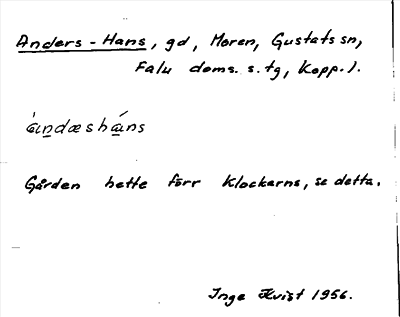 Anders-Hans, gd, Moren, Gustafs sn,
Falu doms. s. tg, Kopp. l.
ándæsháns
Gården hette förr Klockarns, se detta.
Inge Kvist 1956.